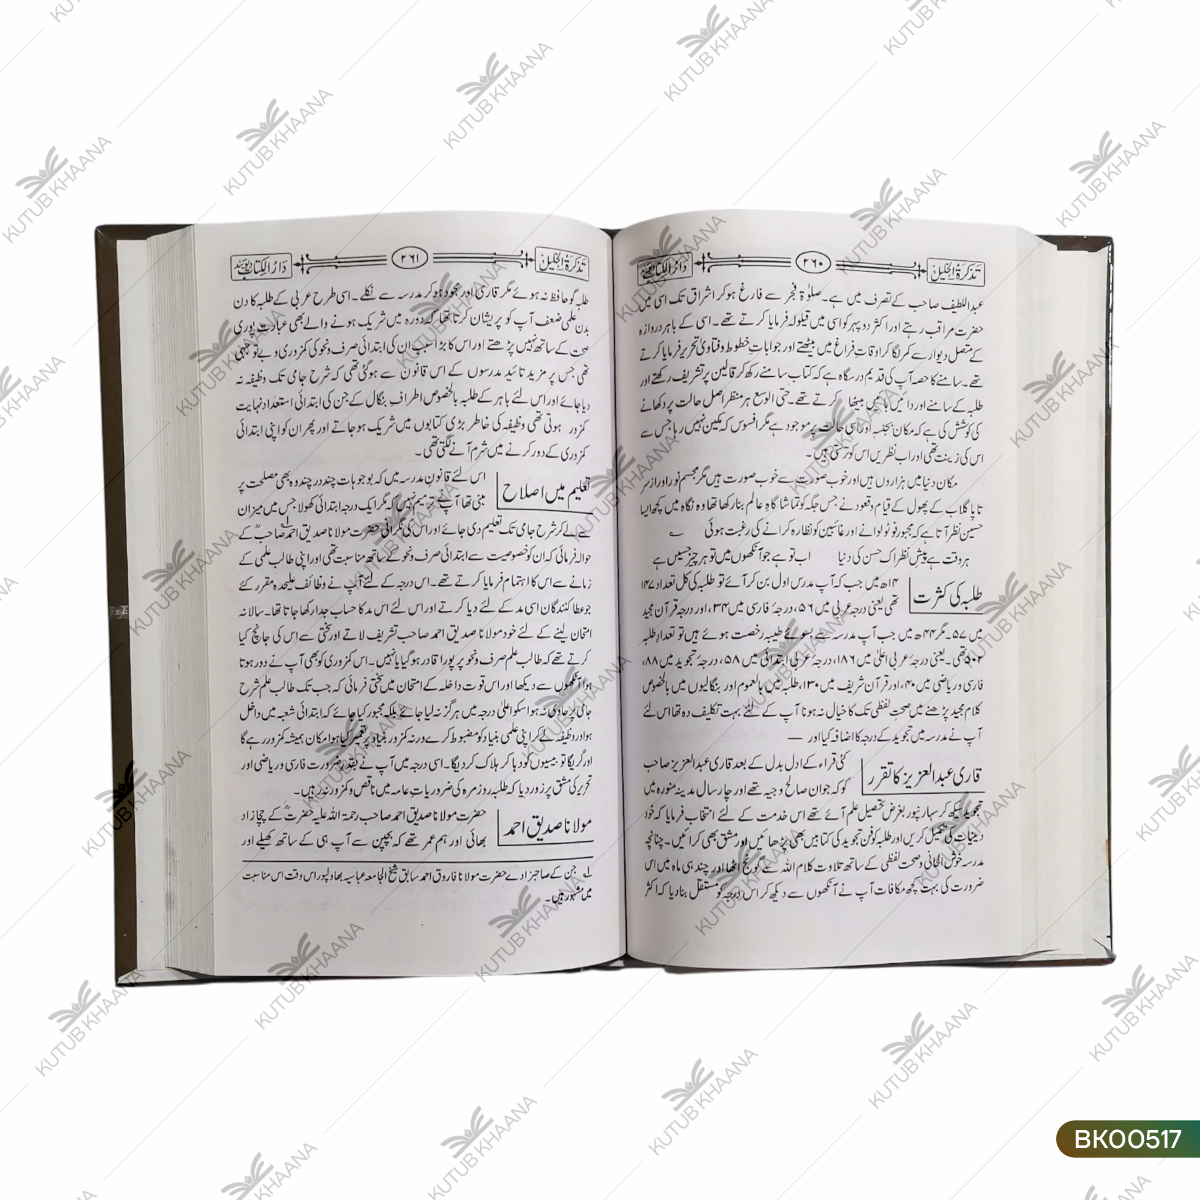 تذکرۃ الخلیل
۲۶۰
دار الکتاب دیوبند
عبد اللطیف صاحب کے تصرف میں ہے۔ صلوٰۃ فجر سے فارغ ہوکر اشراق تک اسی میں
حضرت مراقب رہتے اور اکثر دوپہر کو اسی میں قیلولہ فرمایا کرتے تھے۔ اسی کے باہر دروازہ
کے متصل دیوار سے کمر لگا کر اوقات فراغ میں بیٹھتے اور جوابات خطوط و فتاویٰ تحریر فرمایا کرتے
تھے۔ سامنے کا حصہ آپ کی قدیم درسگاہ ہے کہ کتاب سامنے رکھ کر قالین پر تشریف رکھتے اور
طلبہ کے سامنے اور دائیں بائیں بیٹھا کرتے تھے۔ حتی الوسع ہر منظر اصل حالت پر دکھانے
کی کوشش کی ہے کہ مکان بجنسہ اور اسی حالت پر موجود ہے مگر افسوس کہ مکین نہیں رہا جس سے
اس کی زینت تھی اور اب نظریں اس کو ترستی ہیں۔
مکان دنیا میں ہزاروں ہیں اور خوب صورت سے خوب صورت ہیں مگر مجسم نور اور از سر
تا پا گلاب کے پھول کے قیام و قعود نے جس جگہ کو تماشا گاہ عالم بنا رکھا تھا وہ نگاہ میں کچھ ایسا
حسین نظر آتا ہے کہ مجبور نوٹو لوانے اور غائبین کو نظارہ کرانے کی رغبت ہوئی
ہر وقت ہے پیش نظر اک حسن کی دنیا اب تو ہے جو آنکھوں میں تو ہر چیز حسیں ہے
طلبہ کی کثرت
۱۴ھ میں جب کہ آپ مدرس اول بن کر آئے تو طلبہ کی کل تعداد ۱۴۷
تھی یعنی درجہ عربی میں ۵۶، درجۂ فارسی میں ۳۴، اور درجہ قرآن مجید
میں ۵۷۔ مگر ۴۴ھ میں جب آپ مدرسہ سے بسوئے طیبہ رخصت ہوئے ہیں تو تعداد طلبہ
۵۰۲ تھی۔ یعنی درجۂ عربی اعلیٰ میں ۱۸۶، درجۂ عربی ابتدائی میں ۵۸، درجۂ تجوید میں ۸۸،
فارسی و ریاضی میں ۴۰، اور قرآن شریف میں ۱۳۰، طلبہ میں بالعموم اور بنگالیوں میں بالخصوص
کلام مجید پڑھنے میں صحت لفظی تک کا خیال نہ ہونا آپ کے لئے بہت تکلیف دہ تھا اس لئے
آپ نے مدرسہ میں تجوید کے درجہ کا اضافہ کیا اور —
قاری عبد العزیز کا تقرر
کئی قراء کے ادل بدل کے بعد قاری عبد العزیز صاحب
کو کہ جوان صالح و وجیہ تھے اور چار سال مدینہ منورہ میں
تجوید سیکھ کر سہارنپور بغرض تحصیل علم آئے تھے اس خدمت کے لئے انتخاب فرمایا کہ خود
دینیات کی تکمیل کریں اور طلبہ کو فن تجوید کی کتابیں بھی پڑھائیں اور مشق بھی کرائیں۔ چنانچہ
مدرسہ خوش الحانی و صحت لفظی کے ساتھ تلاوت کلام اللہ سے گونج اٹھا اور چند ہی ماہ میں اس
ضرورت کی بہت کچھ مکافات آپ نے آنکھوں سے دیکھ کر اس درجہ کو مستقل بنا دیا کہ اکثر
تذکرۃ الخلیل
۲۶۱
دار الکتاب دیوبند
طلبہ گو حافظ نہ ہوئے مگر قاری اور مجود ہوکر مدرسہ سے نکلے۔ اسی طرح عربی کے طلبہ کا دن
بدن علمی ضعف آپ کو پریشان کرتا تھا کہ دورہ میں شریک ہونے والے بھی عبارت پوری
صحت کے ساتھ نہیں پڑھتے اور اس کا بڑا سبب ان کی ابتدائی صرف و نحو کی کمزوری و بے توجہی
تھی جس پر مزید تائید مدرسوں کے اس قانون سے ہوگئی تھی کہ شرح جامی تک وظیفہ نہ
دیا جائے اور اس لئے باہر کے طلبہ بالخصوص اطراف بنگال کے جن کی ابتدائی استعداد نہایت
کمزور ہوتی تھی وظیفہ کی خاطر بڑی کتابوں میں شریک ہوجاتے اور پھر ان کو اپنی ابتدائی
کمزوری کے دور کرنے میں شرم آنے لگتی تھی۔
تعلیم میں اصلاح
اس لئے قانون مدرسہ میں کہ بوجوہات چند در چند وہ بھی مصلحت پر
مبنی تھا آپ نے ترمیم نہیں کی مگر ایک درجہ ابتدائی کھولا جس میں میزان
سے لے کر شرح جامی تک تعلیم دی جائے اور اس کی نگرانی حضرت مولانا صدیق احمد صاحب کے
حوالہ فرمائی کہ ان کو خصوصیت سے ابتدائی صرف و نحو کے ساتھ مناسبت تھی اور اپنی طالب علمی کے
زمانے سے اس کا اہتمام فرمایا کرتے تھے۔ اس درجہ کے لئے آپ نے وظائف علیحدہ مقرر کئے
جو عطا کنندگان اسی مد کے لئے دیا کرتے اور اس لئے اس مد کا حساب جدا رکھا جاتا تھا۔ سالانہ
امتحان لینے کے لئے خود مولانا صدیق احمد صاحب تشریف لاتے اور سختی سے اس کی جانچ کیا
کرتے تھے کہ طالب علم صرف و نحو پر پورا قادر ہو گیا یا نہیں۔ اس کمزوری کو بھی آپ نے دور ہوتا
ہوا آنکھوں سے دیکھا اور اس قوت داخلہ کے امتحان میں سختی فرمائی کہ جب تک طالب علم شرح
جامی پر حاوی نہ ہوا سکو اعلیٰ درجہ میں ہرگز نہ لیا جائے بلکہ مجبور کیا جائے کہ ابتدائی شعبہ میں داخل
ہو اور وظیفہ لے کر اپنی علمی بنیاد کو مضبوط کرے ورنہ کمزور بنیاد پر تعمیر کیا ہوا مکان ہمیشہ کمزور رہے گا
اور گریگا تو بیسیوں کو دبا کر ہلاک کر دیگا۔ اسی درجہ میں آپ نے بقدر ضرورت فارسی و ریاضی اور
تحریر کی مشق پر زور دیا کہ طلبہ روزمرہ کی ضروریات عامہ میں ناقص و کمزور نہ رہیں۔
مولانا صدیق احمد
حضرت مولانا صدیق احمد صاحب رحمۃ اللہ علیہ حضرت کے چچا زاد
بھائی اور ہم عمر تھے کہ بچپن سے آپ ہی کے ساتھ کھیلے اور
لہ جن کے صاحبزادے حضرت مولانا فاروق احمد سابق شیخ الجامعہ عباسیہ بھاولپور اس وقت اس مناسبت
میں مشہور ہیں۔
KUTUB KHAANA
BK00517